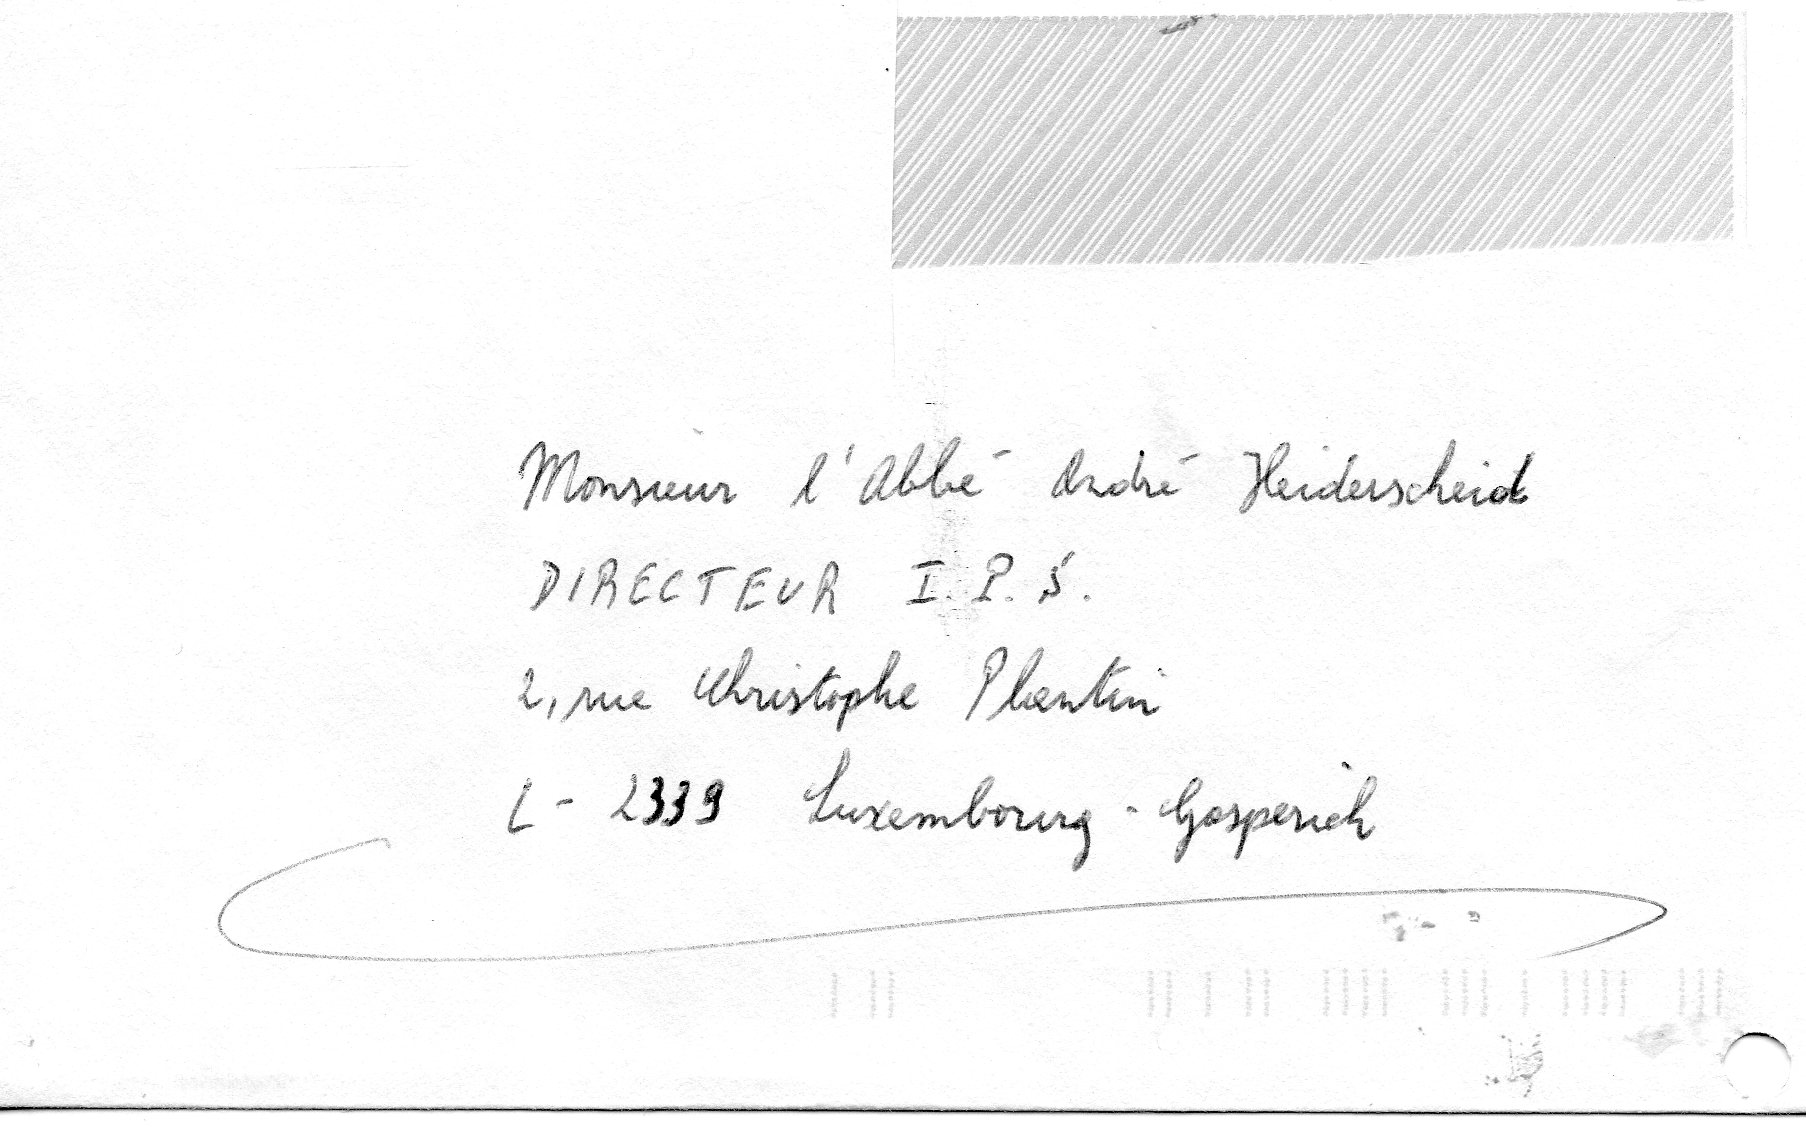 Monsieur l'Abbé André Heiderscheid
DIRECTEUR I.P.S.
2, rue Christophe Plantin
L - 2339 Luxembourg - Gasperich